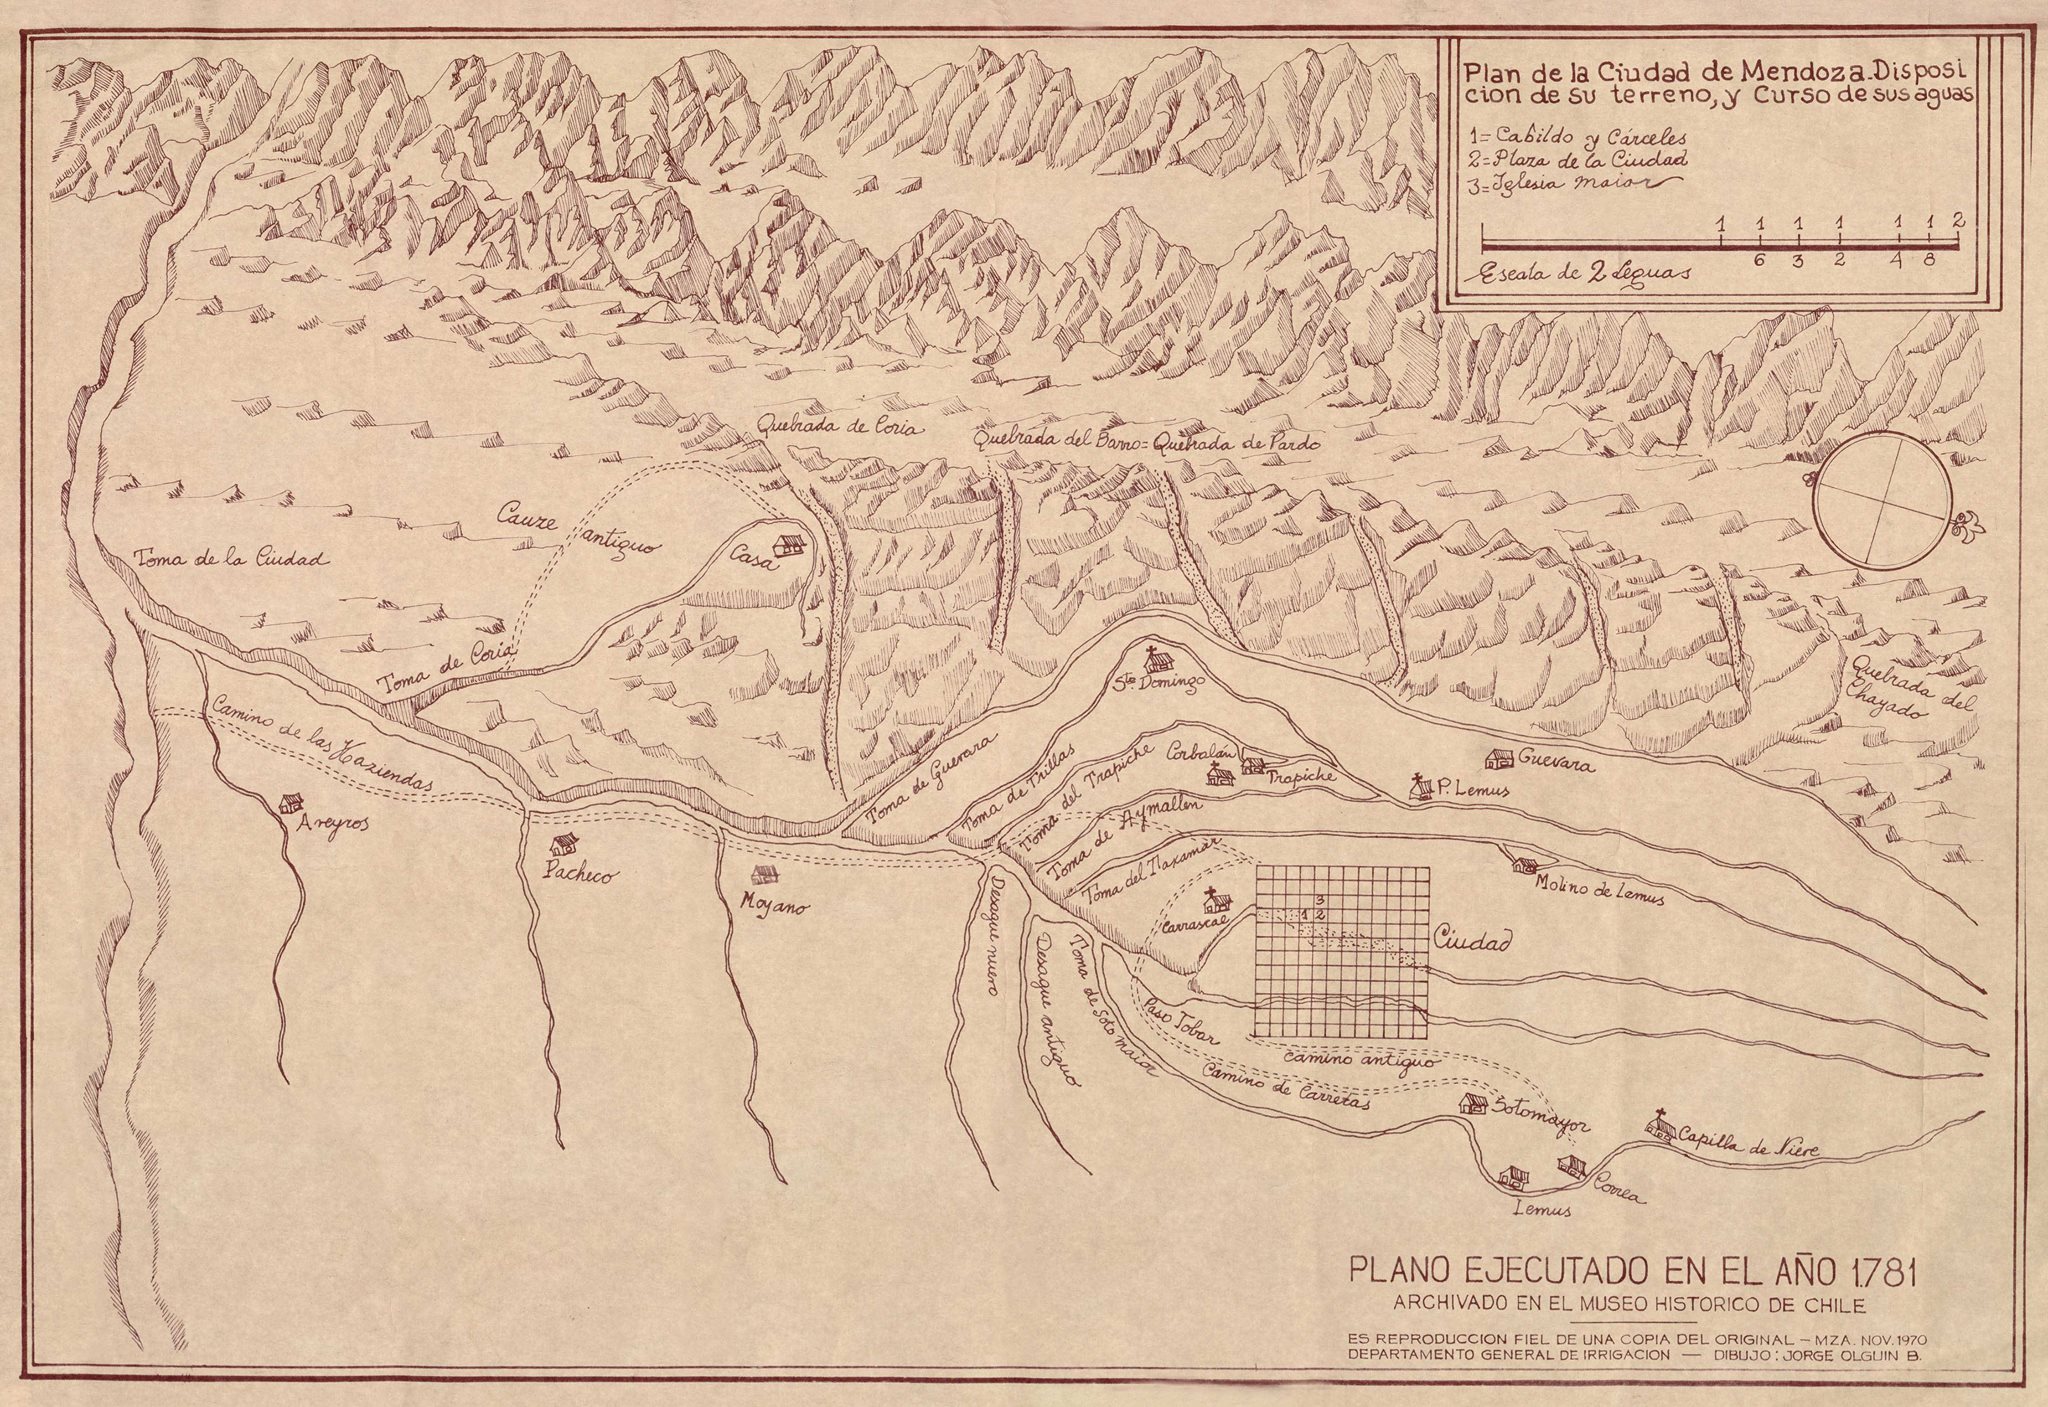 Plan de la Ciudad de Mendoza. Disposi
cion de su terreno, y Curso de sus aguas
1= Cabildo y Cárceles
2= Plaza de la Ciudad
3= Iglesia maior
1 1 1 1 1 1 2
6 3 2 4 8
Escala de 2 Leguas
Quebrada de Coria
Quebrada del Barro= Quebrada de Pardo
Cauze antiguo
Casa
Toma de la Ciudad
Toma de Coria
Quebrada del
Chayado
Sto. Domingo
Camino de las Haziendas
Toma de Guevara
Toma de Trillas
Toma del Trapiche
Corbalan
Trapiche
Guevara
P. Lemus
Toma de Aymallen
Toma del Taxamar
Areyros
Pacheco
Moyano
Molino de Lemus
Carrascae
3
1 2
Ciudad
Desague nuevo
Desague antiguo
Toma de Soto maior
Paso Tobar
Camino antiguo
Camino de Carretas
Sotomayor
Capilla de Niere
Correa
Lemus
PLANO EJECUTADO EN EL AÑO 1.781
ARCHIVADO EN EL MUSEO HISTORICO DE CHILE
ES REPRODUCCION FIEL DE UNA COPIA DEL ORIGINAL – MZA. NOV. 1970
DEPARTAMENTO GENERAL DE IRRIGACION — DIBUJO: JORGE OLGUIN B.